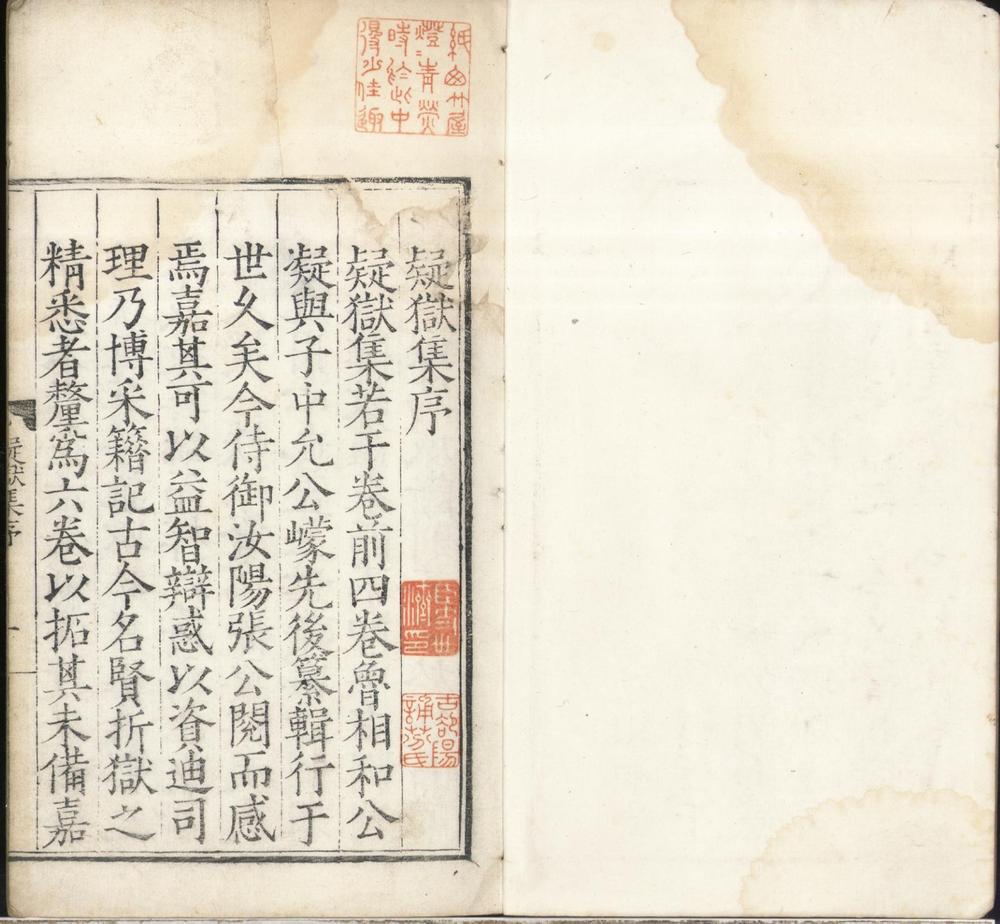 疑獄集序
疑獄集若干卷前四卷魯相和公
凝與子中允公㠓先後纂輯行于
世久矣今侍御汝陽張公閱而感
焉嘉其可以益智辯惑以資迪司
理乃博采籍記古今名賢折獄之
精悉者釐爲六卷以拓其未備嘉
疑獄集序
一
紙窗竹屋
燈〻青熒
時於此中
得少佳趣